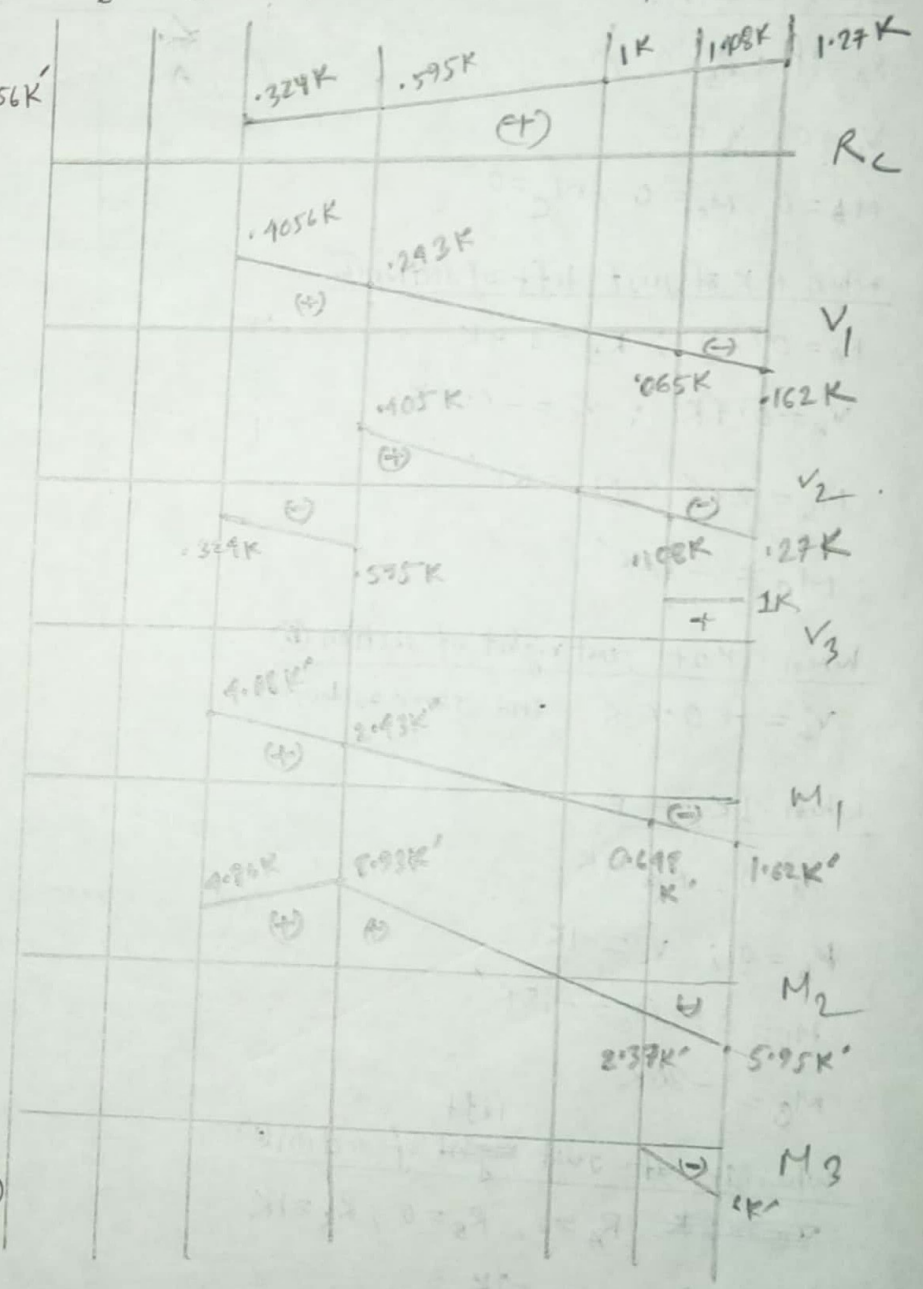 56K'
.324K .595K 1K 1.108K 1.27K
(+)
Rc
.4056K .243K
(+) (-)
V1
.065K .162K
.405K
(+)
(-) (-)
V2
.324K .595K .108K .27K
1K
+
V3
2.43K'
(+) (-)
M1
1.62K'
4.86K 8.93K'
(+) (+) (-)
M2
2.37K' 5.95K'
(-)
M3